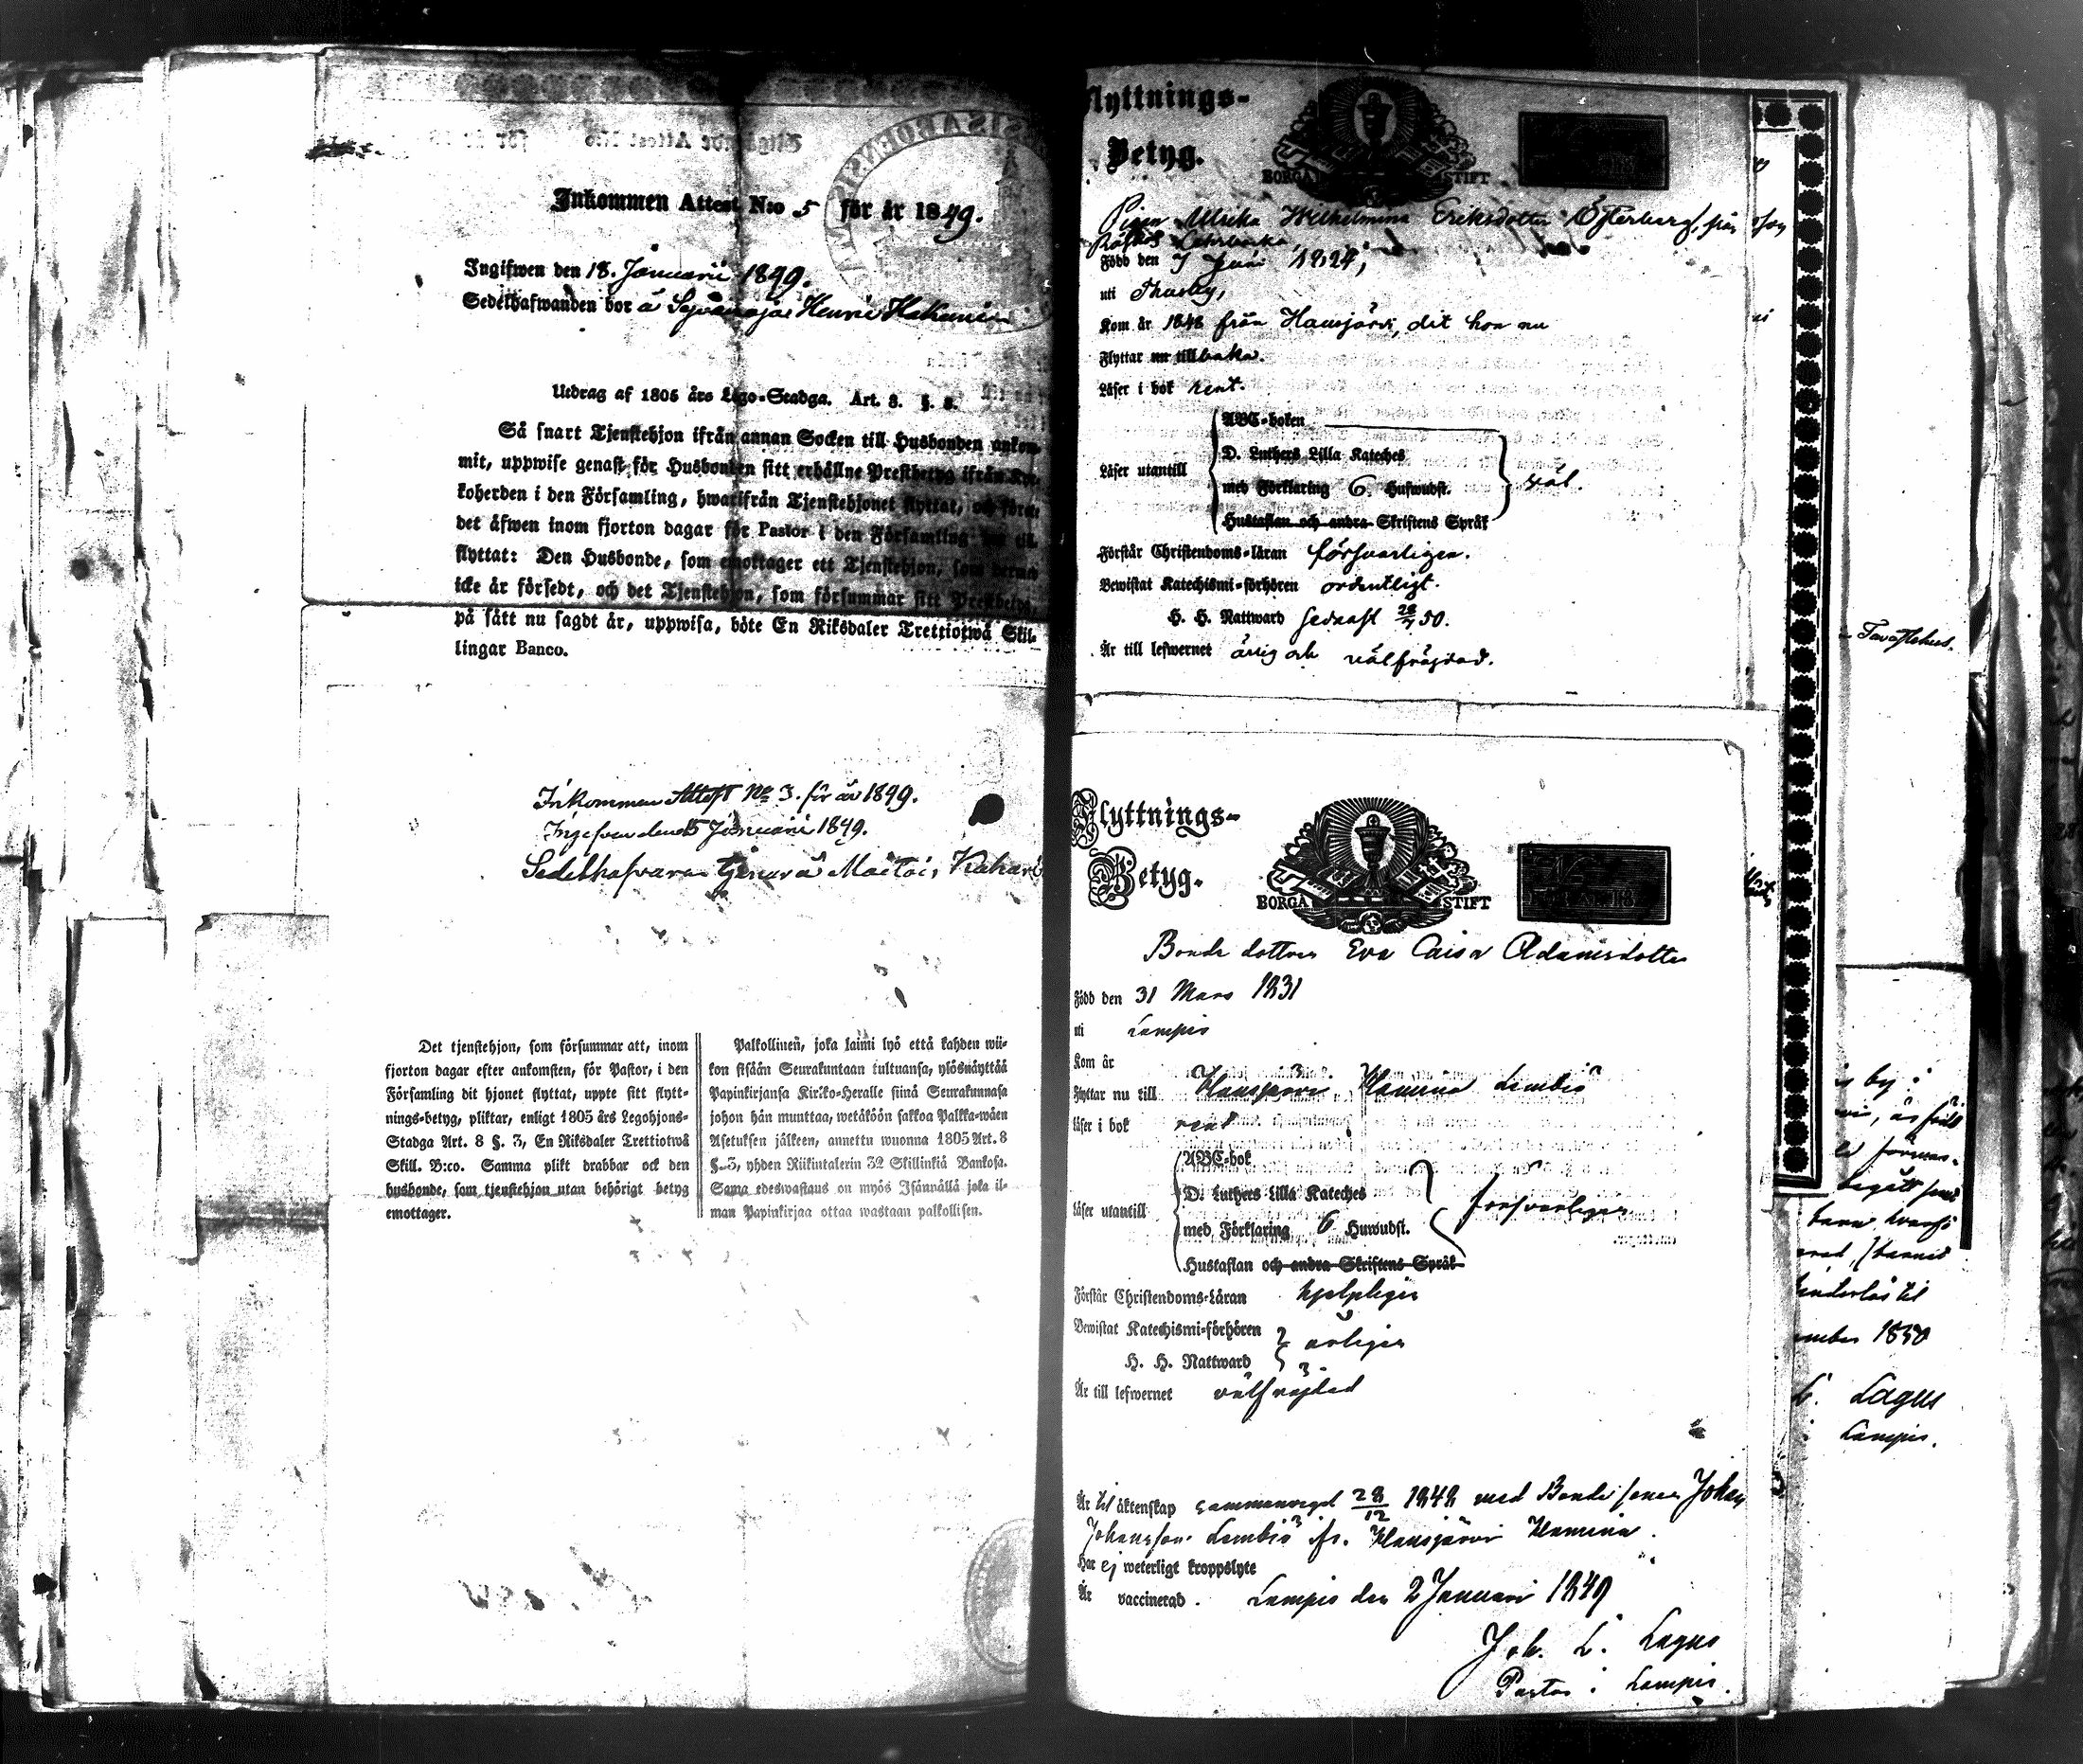 Inkommen Attest N:o 5 för år 1849.
Ingifwen den 18. Januarii 1849.
Sedelhafwanden bor å Henric
Utdrag af 1805 års Lego-Stadga. Art. 8. §. 3.
Så snart Tjenstehjon ifrån annan Socken till Husbonden ankom-
mit, uppwise genast för Husbonden sitt erhållne Prestbetyg ifrån Kyr-
koherden i den Församling, hwarifrån Tjenstehjonet flyttat, och
det åfwen inom fjorton dagar för Pastor i den Församling
flyttat: Den Husbonde, som emottager ett Tjenstehjon, som
icke är försedt, och det Tjenstehjon, som försummar sitt Prestbetyg,
på sätt nu sagdt är, uppwisa, böte En Riksdaler Trettiotwå Skil-
lingar Banco.
Inkommen Attest No 3. för år 1849.
Ingifven den 15 Januarii 1849.
Sedelhafvaren
Det tjenstehjon, som försummar att, inom
fjorton dagar efter ankomsten, för Pastor, i den
Församling dit hjonet flyttat, uppte sitt flytt-
nings-betyg, pliktar, enligt 1805 års Legohjons-
Stadga Art. 8 §. 3, En Riksdaler Trettiotwå
Skill. B:co. Samma plikt drabbar ock den
husbonde, som tjenstehjon utan behörigt betyg
emottager.
Palkollinen, joka laimi lyö että kahden wii-
kon sisään Seurakuntaan tultuansa, ylösnäyttää
Papinkirjansa Kirkko-Heralle siinä Seurakunnasa
johon hän muuttaa, wetäköön sakkoa Palkka-wäen
Asetuksen jälkeen, annettu wuonna 1805 Art. 8
§. 3, yhden Riikintalerin 32 Skillinkiä Bankosa.
Sama edeswastaus on myös Isännällä joka il-
man Papinkirjaa ottaa wastaan palkollisen.
Flyttnings-
Betyg.
BORGÅ STIFT
Pigan Ulrika Wilhelmina Eriksdotter Österberg, från
Född den 7 Juni 1824,
uti Thusby,
Kom år 1848 från Hausjärvi, dit hon nu
Flyttar nu tillbaka.
Läser i bok rent.
ABC-boken
D. Luthers Lilla Kateches
Läser utantill med Förklaring 6 Hufwudst. väl.
Hustaflan och andra Skriftens Språk
Förstår Christendoms-läran försvarligen.
Bewistat Katechismi-förhören ordentligt.
H. H. Nattward sednast 28/7 50.
Är till lefwernet ärlig och välfrägdad.
Flyttnings-
Betyg.
BORGÅ STIFT
Bonde dottren Eva Caisa Adamsdotter
Född den 31 Mars 1831
uti Lampis
Kom år
Flyttar nu till Hausjärvi, Hamina Lembiö
Läser i bok rent
ABC-bok
D. Luthers Lilla Kateches
Läser utantill med Förklaring 6 Huwudst. försvarligen
Hustaflan och andra Skriftens Språk
Förstår Christendoms-Läran hjelpligen
Bewistat Katechismi-förhören årligen
H. H. Nattward
Är till lefwernet välfrägdad
Är til äktenskap sammanvigd 28/12 1848 med Bonde sonen Johan
Johansson Lembiö fr. Hausjärvi Hamina.
Har ej weterligt kroppslyte
Är vaccinerad. Lampis den 2 Januari 1849
Joh. L. Lagus
Pastor i Lampis.
Tavastehus.
by i
barn
1850
L. Lagus
Lampis.